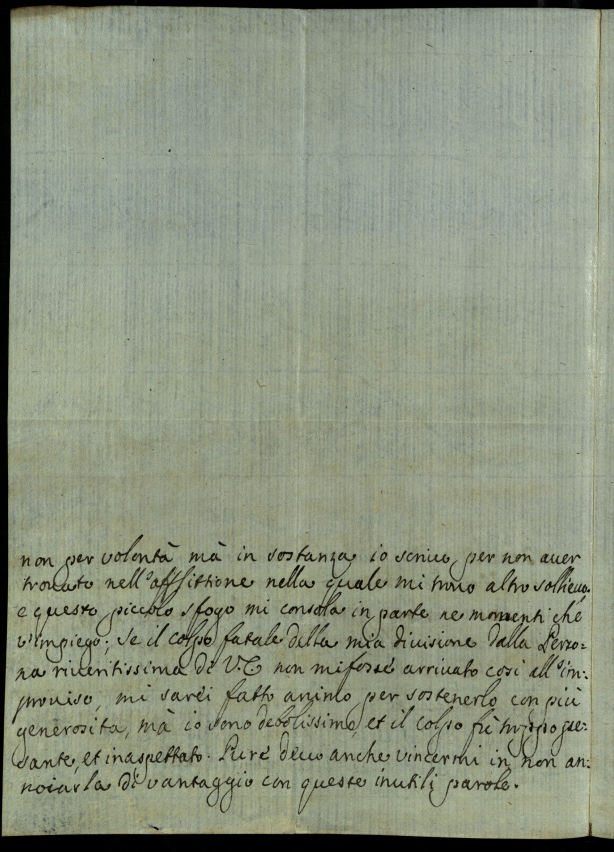 non per volontà mà in sostanza io scrivo per non aver
trovato nell'afflittione nella quale mi trovo altro sollievo
e questo piccolo sfogo mi consola in parte ne momenti chè
v'impiego; Se il colpo fatale dalla mia divisione dalla Perzo=
na riveritissima di V.E. non mi fosse arrivato così all'im=
proviso, mi sarèi fatto animo per sostenerlo con più
generosità, mà io sono debolissimo, et il colpo fù troppo pe=
sante, et inaspettato. Pure devo anche vincermi in non an=
noiarla di vantaggio con queste inutili parole.